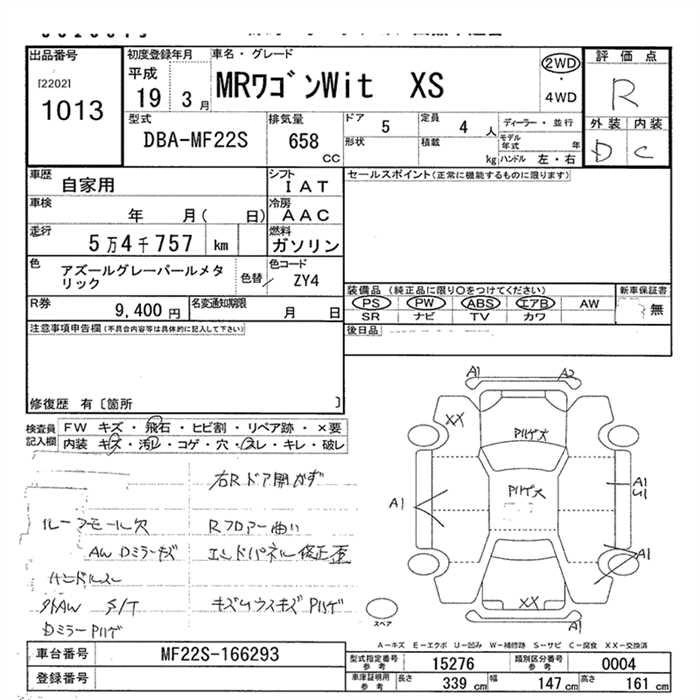 出品番号
[2202]
1013
初度登録年月
平成
19 3月
車名・グレード
MRワゴンWit XS
2WD
・
4WD
評価点
R
外装 内装
D C
型式
DBA-MF22S
排気量
658
CC
ドア 5
定員 4人
形状
積載 kg
ディーラー・並行
モデル年式 年
ハンドル 左・右
車歴
自家用
シフト
IAT
車検
年 月( 日)
冷房
AAC
走行
5万4千757 km
燃料
ガソリン
色
アズールグレーパールメタリック
色替/
色コード
ZY4
R券
9,400円
名変通知期限
月 日
セールスポイント(正常に機能するものに限ります)
装備品(純正品に限り○をつけてください)
PS PW ABS エアB AW
SR ナビ TV カワ
新車保証書
無
後日品
注意事項申告欄(不具合内容等は具体的に記入して下さい)
修復歴 有〔箇所 〕
検査員記入欄
FW キズ・飛石・ヒビ割・リペア跡・×要
内装 キズ・汚れ・コゲ・穴・スレ・キレ・破レ
右Rドア開かず
ルーフモール欠
Rフロアー曲り
AW Dミラーキズ
エンドパネル修正歪
ハンドルスレ
外AW S/T
キズ小ウスキズPハゲ
Dミラー Pハゲ
A1 A2
XX
Pハゲ大
Pハゲ大
A1
A1
U1
A1
XX
A1
スペア
A-キズ E-エクボ U-凹み W-補修跡 S-サビ C-腐食 XX-交換済
車台番号
MF22S-166293
登録番号
型式指定番号
参考
15276
類別区分番号
参考
0004
車庫証明用
参考
長さ 339 cm 幅 147 cm 高さ 161 cm